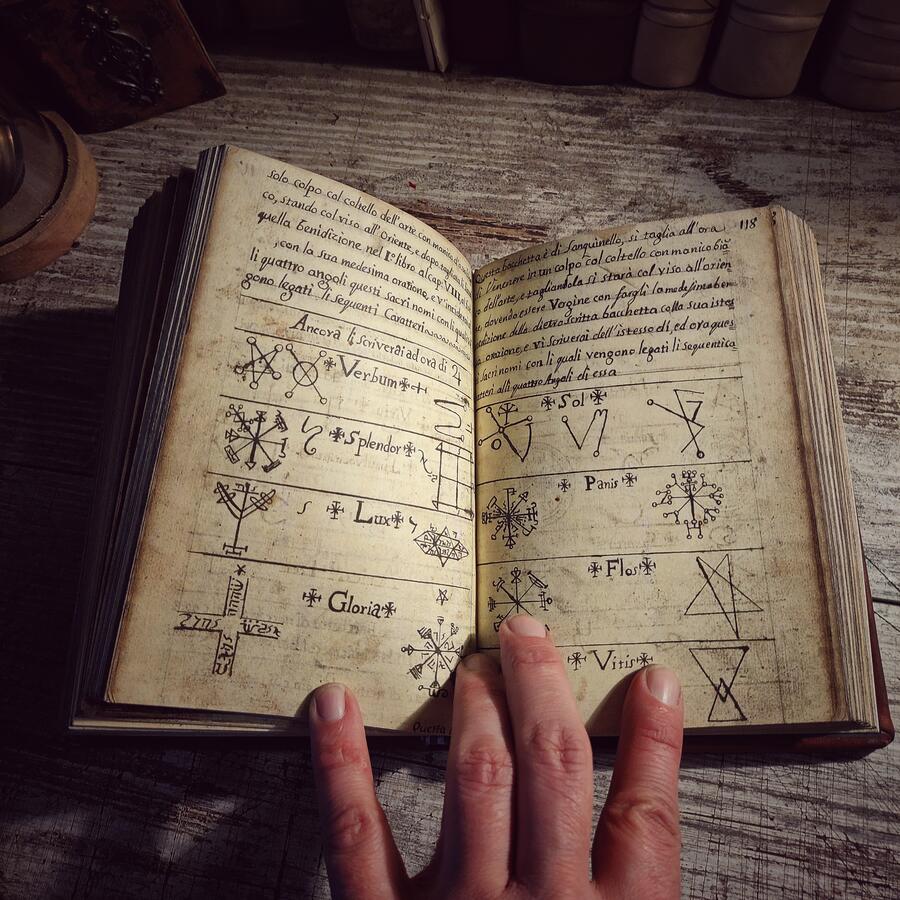 solo colpo col coltello dell'arte con manico
co, stando col viso all'Oriente, e dopo
quella Benidizione nel I° libro al cap. VIII
, con la sua medesima orazione, e v'
li quattro angoli questi sacri nomi con li
gono legati li seguenti Caratteri
Ancora li scriverai ad ora di ♃
Verbum
Splendor
Lux
Gloria
118
bacchetta è di Sanguinello, si taglia all'ora
in un colpo col coltello con manico
dell'arte, e tagliandola si starà col viso all'
dovendo essere Vagine con fargli la medesima
della dietro scritta bacchetta colla sua
orazione, e vi scriverai dell'istesso di, ed ora
sacri nomi con li quali vengono legati li
alli quattro Angoli di essa
Sol
Panis
Flos
Vitis